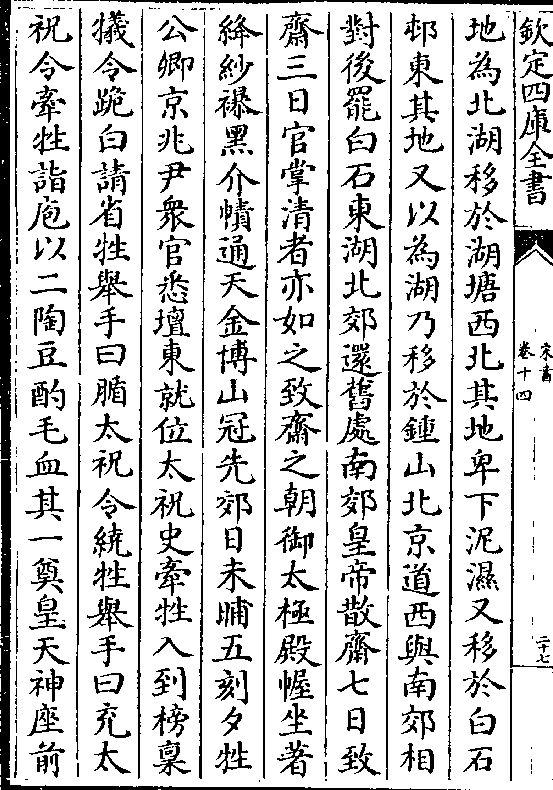 欽定四庫全書
宋書
卷十四
二十七
地為北湖移於湖塘西北其地卑下泥濕又移於白石
邨東其地又以為湖乃移於鍾山北京道西與南郊相
對後罷白石東湖北郊還舊處南郊皇帝散齋七日致
齋三日官掌清者亦如之致齋之朝御太極殿幄坐著
絳紗襮黑介幘通天金博山冠先郊日未晡五刻夕牲
公卿京兆尹衆官悉壇東就位太祝史牽牲入到榜稟
犧令跪白請省牲舉手曰腯太祝令繞牲舉手曰充太
祝令牽牲詣庖以二陶豆酌毛血其一奠皇天神座前